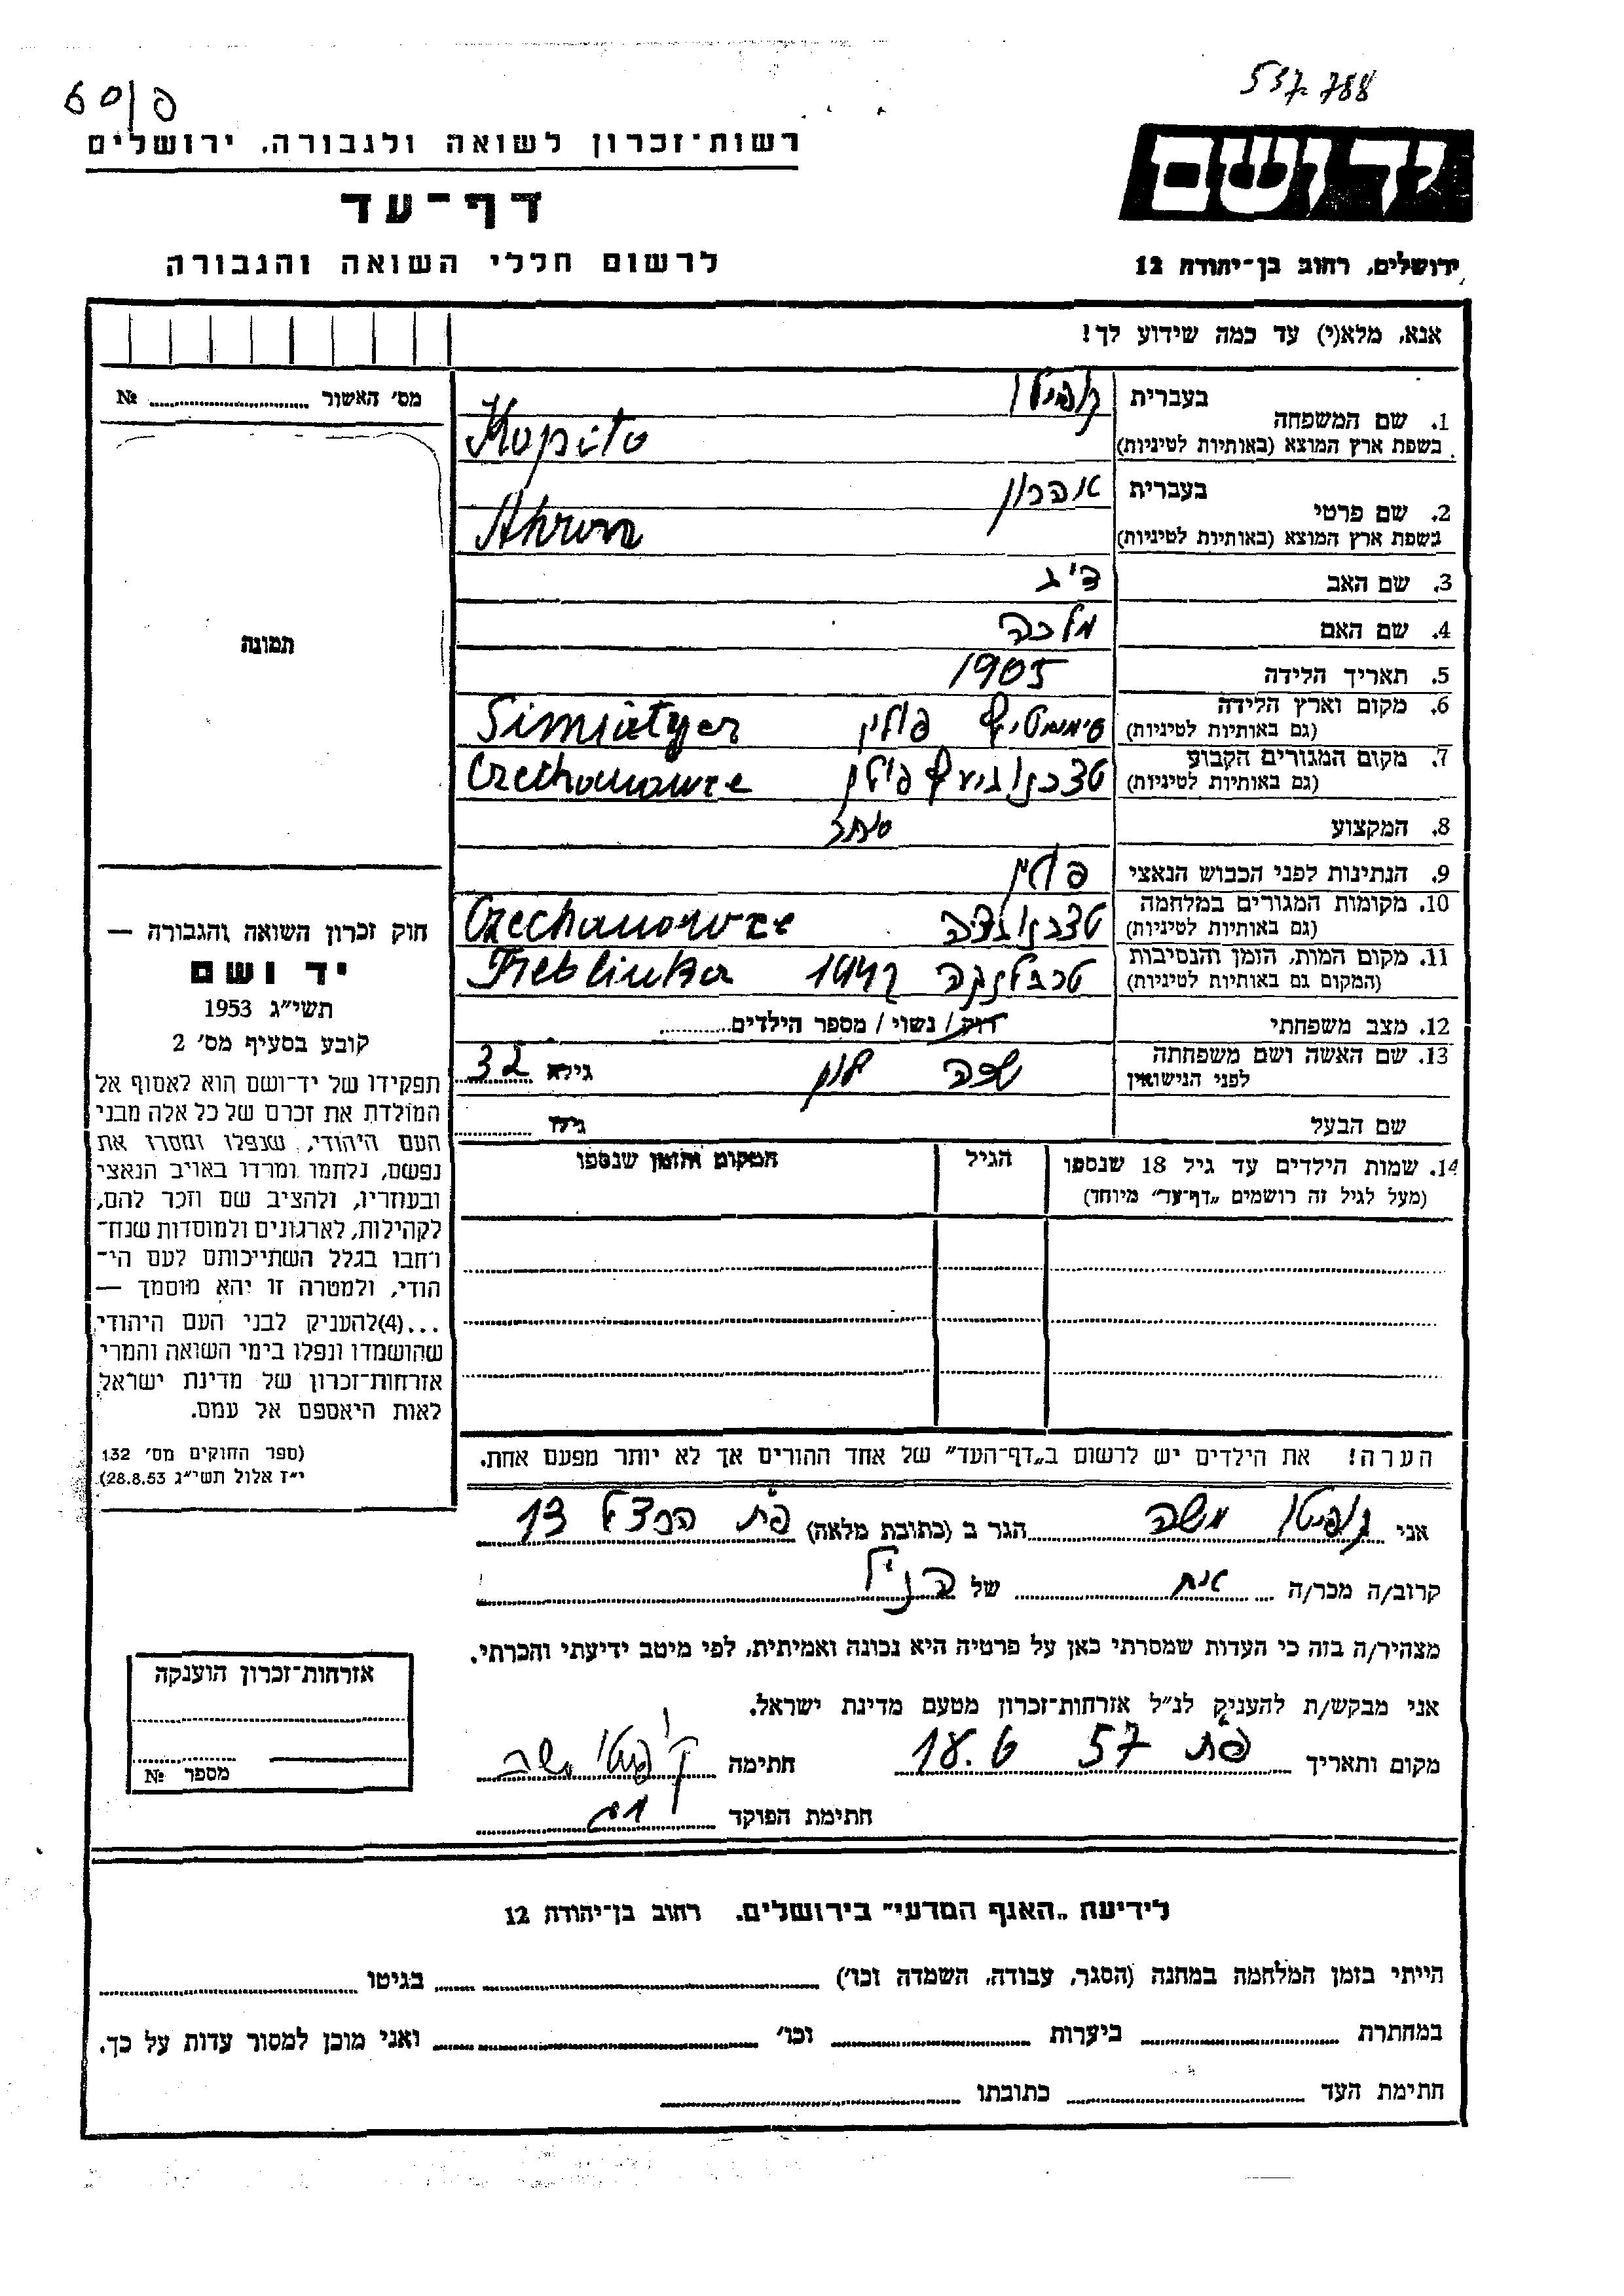 537.788
60/פ
רשות-זכרון לשואה ולגבורה, ירושלים
דף-עד
לרשום חללי השואה והגבורה
יד ושם
ירושלים, רחוב בן-יהודה 12
אנא, מלא(י) עד כמה שידוע לך!
מס' האשור № ........
תמונה
1. שם המשפחה
בעברית קופיטו
בשפת ארץ המוצא (באותיות לטיניות) Kopito
2. שם פרטי
בעברית אהרון
בשפת ארץ המוצא (באותיות לטיניות) Ahron
3. שם האב
4. שם האם מלכה
5. תאריך הלידה 1905
6. מקום וארץ הלידה
(גם באותיות לטיניות) פולין Simiatyer
7. מקום המגורים הקבוע
(גם באותיות לטיניות) פולין Czechonowze
8. המקצוע סוחר
9. הנתינות לפני הכבוש הנאצי פולין
10. מקומות המגורים במלחמה
(גם באותיות לטיניות) Czechanowze
11. מקום המות, הזמן והנסיבות
(המקום גם באותיות לטיניות) טרבלינקה 1942 Treblinka
12. מצב משפחתי רווק / נשוי / מספר הילדים........
13. שם האשה ושם משפחתה
לפני הנישואין גילה 32
שם הבעל גילו ........
14. שמות הילדים עד גיל 18 שנספו
(מעל לגיל זה רושמים „דף-עד" מיוחד)
הגיל
המקום והזמן שנספו
הערה! את הילדים יש לרשום ב„דף-העד" של אחד ההורים אך לא יותר מפעם אחת.
חוק זכרון השואה והגבורה —
יד ושם
תשי"ג 1953
קובע בסעיף מס' 2
תפקידו של יד-ושם הוא לאסוף אל
המולדת את זכרם של כל אלה מבני
העם היהודי, שנפלו ומסרו את
נפשם, נלחמו ומרדו באויב הנאצי
ובעוזריו, ולהציב שם וזכר להם,
לקהילות, לארגונים ולמוסדות שנח-
רחבו בגלל השתייכותם לעם הי-
הודי, ולמטרה זו יהא מוסמך —
...(4)להעניק לבני העם היהודי
שהושמדו ונפלו בימי השואה והמרי
אזרחות-זכרון של מדינת ישראל,
לאות היאספם אל עמם.
(ספר החוקים מס' 132
י"ז אלול תשי"ג 28.8.53)
אני קופיטו משה הגר ב (כתובת מלאה) פ"ת הרצל 13
קרוב/ה מכר/ה אח של הנ"ל
מצהיר/ה בזה כי העדות שמסרתי כאן על פרטיה היא נכונה ואמיתית, לפי מיטב ידיעתי והכרתי.
אני מבקש/ת להעניק לנ"ל אזרחות-זכרון מטעם מדינת ישראל.
מקום ותאריך פ"ת 18.6 57 חתימה קופיטו משה
חתימת הפוקד
אזרחות-זכרון הוענקה
מספר №
לידיעת „האגף המדעי" בירושלים, רחוב בן-יהודה 12
הייתי בזמן המלחמה במחנה (הסגר, עבודה, השמדה וכו') ........ בגיטו ........
במחתרת ........ ביערות ........ וכו' ........ ואני מוכן למסור עדות על כך.
חתימת העד ........ כתובתו ........